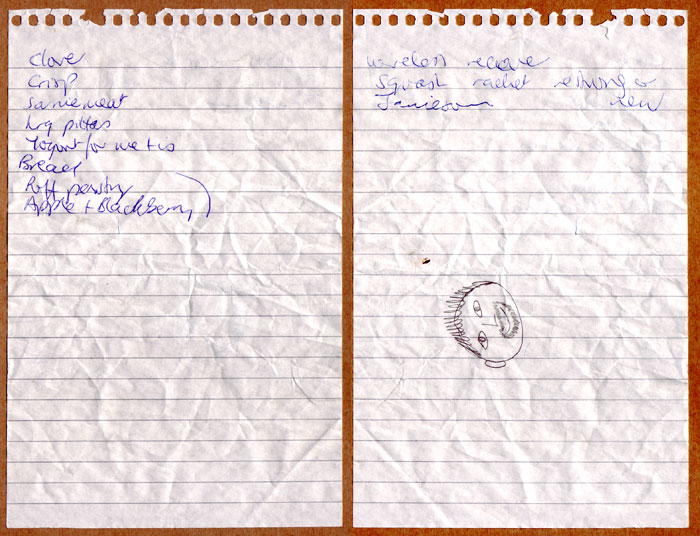 Clover
Crisp
Sarnie meat
Lrg pittas
Yogurt for me + us
Bread
Puff pastry
Apple + Blackberry
wireless
Squash racket restrung or
Jamieson new